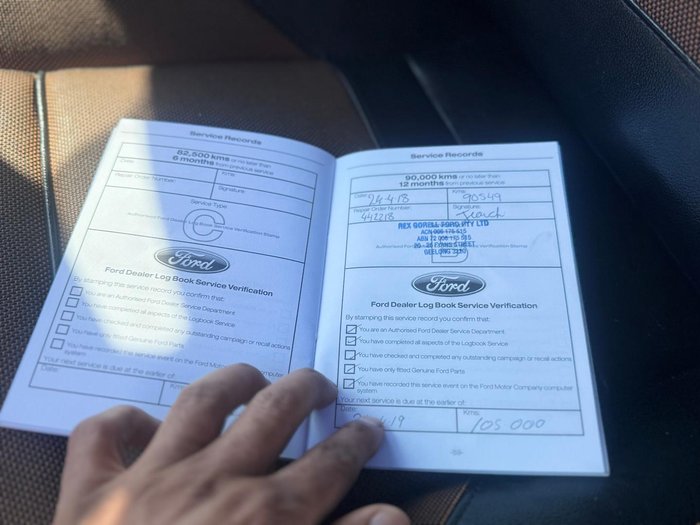 Service Records
82,500 kms or no later than
6 months from previous service
Date:
Kms:
Repair Order Number:
Signature:
Service Type
C
Authorised Ford Dealer Log Book Service Verification Stamp
Ford
Ford Dealer Log Book Service Verification
By stamping this service record you confirm that:
You are an Authorised Ford Dealer Service Department
You have completed all aspects of the Logbook Service
You have checked and completed any outstanding campaign or recall actions
You have only fitted Genuine Ford Parts
You have recorded the service event on the Ford Motor Company computer
system
Your next service is due at the earlier of:
Date:
Kms:
Service Records
90,000 kms or no later than
12 months from previous service
Date: 24-4-18
Kms: 90549
Repair Order Number: 442218
Signature:
REX GORELL FORD PTY LTD
GEELONG 3220
Authorised Ford Service Verification Stamp
Ford
Ford Dealer Log Book Service Verification
By stamping this service record you confirm that:
You are an Authorised Ford Dealer Service Department
You have completed all aspects of the Logbook Service
You have checked and completed any outstanding campaign or recall actions
You have only fitted Genuine Ford Parts
You have recorded the service event on the Ford Motor Company computer
system
Your next service is due at the earlier of:
Date: 4-19
Kms: 105 000